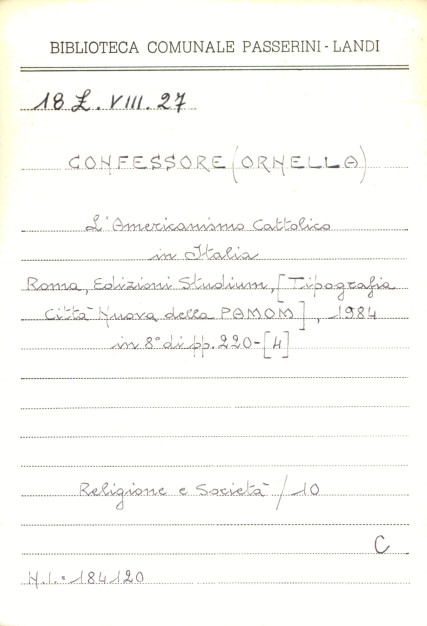 BIBLIOTECA COMUNALE PASSERINI-LANDI
18 L. VIII. 27
CONFESSORE (ORNELLA)
L'Americanismo Cattolico
in Italia
Roma, Edizioni Studium, [Tipografia
Città Nuova della PAMOM], 1984
in 8° di pp. 220-[4]
Religione e Società / 10
C
N.I. = 184120